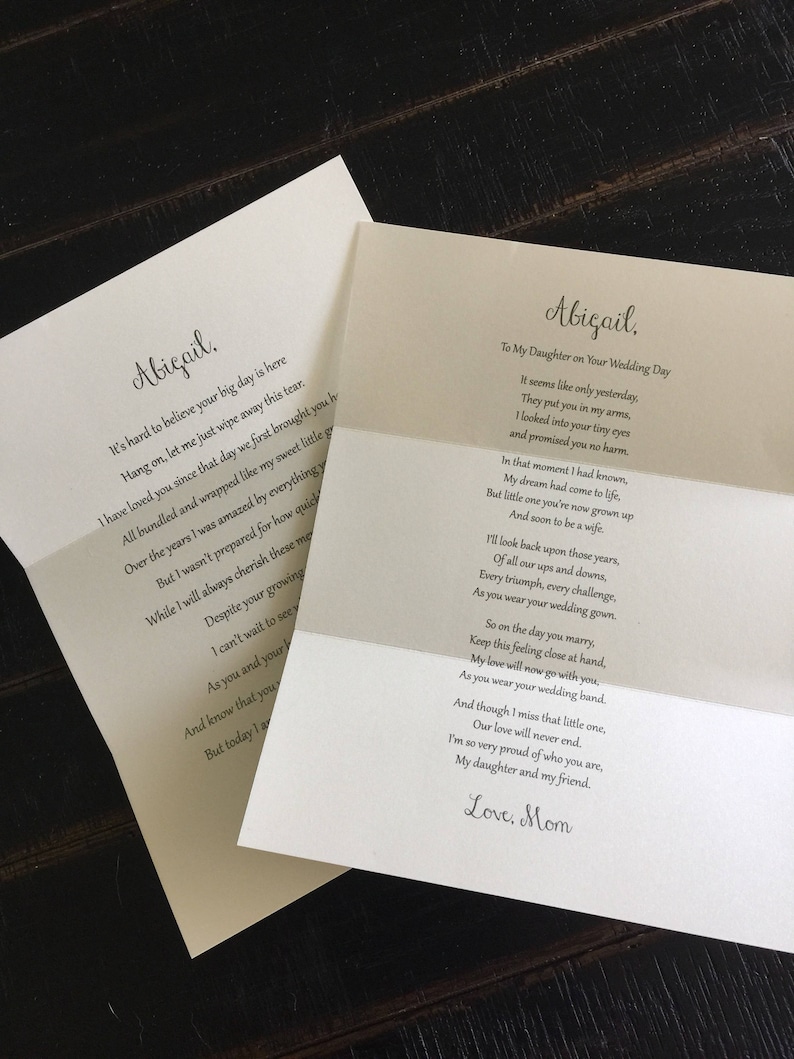 Abigail,
It's hard to believe your big day is here
Hang on, let me just wipe away this tear.
I have loved you since that day we first brought you
All bundled and wrapped like my sweet little
Over the years I was amazed by everything
But I wasn't prepared for how
While I will always cherish these
Despite your growing
I can't wait to see
As you and your
And know that you
But today I
Abigail,
To My Daughter on Your Wedding Day
It seems like only yesterday,
They put you in my arms,
I looked into your tiny eyes
and promised you no harm.
In that moment I had known,
My dream had come to life,
But little one you're now grown up
And soon to be a wife.
I'll look back upon those years,
Of all our ups and downs,
Every triumph, every challenge,
As you wear your wedding gown.
So on the day you marry,
Keep this feeling close at hand,
My love will now go with you,
As you wear your wedding band.
And though I miss that little one,
Our love will never end.
I'm so very proud of who you are,
My daughter and my friend.
Love, Mom